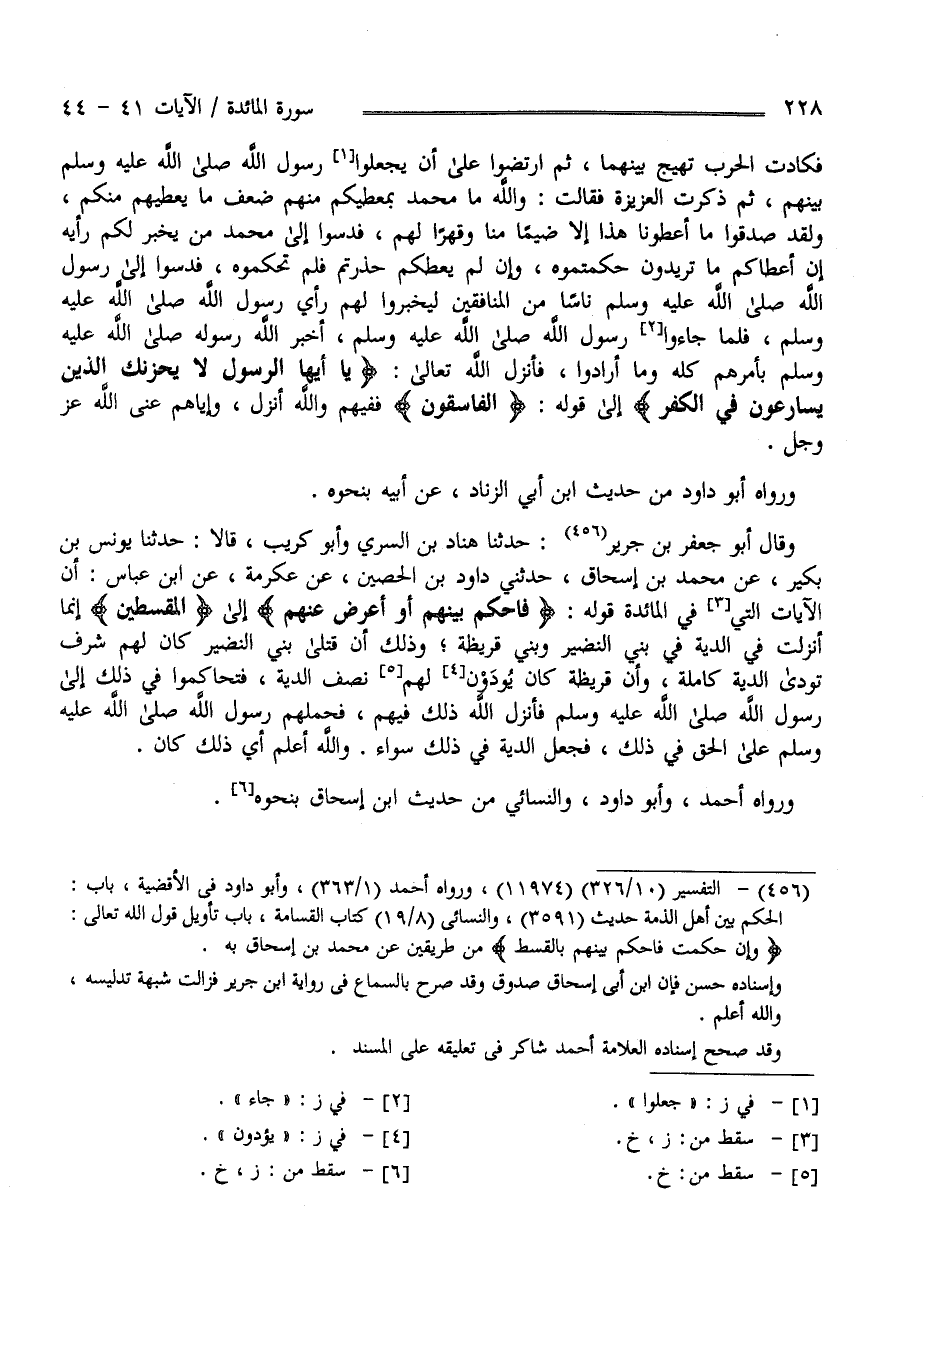 ٢٢٨ سورة المائدة / الآيات ٤١ - ٤٤
فكادت الحرب تهيج بينهما ، ثم ارتضوا علىٰ أن يجعلوا[١] رسول اللَّه صلىٰ اللَّه عليه وسلم
بينهم ، ثم ذكرت العزيزة فقالت : واللَّه ما محمد بمعطيكم منهم ضعف ما يعطيهم منكم ،
ولقد صدقوا ما أعطونا هذا إلا ضيمًا منا وقهرًا لهم ، فدسوا إلىٰ محمد من يخبر لكم رأيه
إن أعطاكم ما تريدون حكمتموه ، وإن لم يعطكم حذرتم فلم تحكموه ، فدسوا إلىٰ رسول
اللَّه صلىٰ اللَّه عليه وسلم ناسًا من المنافقين ليخبروا لهم رأي رسول اللَّه صلىٰ اللَّه عليه
وسلم ، فلما جاءوا[٢] رسول اللَّه صلىٰ اللَّه عليه وسلم ، أخبر اللَّه رسوله صلىٰ اللَّه عليه
وسلم بأمرهم كله وما أرادوا ، فأنزل اللَّه تعالىٰ : ﴿ يا أيها الرسول لا يحزنك الذين
يسارعون في الكفر ﴾ إلىٰ قوله : ﴿ الفاسقون ﴾ ففيهم واللَّه أنزل ، وإياهم عنى اللَّه عز
وجل .
ورواه أبو داود من حديث ابن أبي الزناد ، عن أبيه بنحوه .
وقال أبو جعفر بن جرير(٤٥٦) : حدثنا هناد بن السري وأبو كريب ، قالا : حدثنا يونس بن
بكير ، عن محمد بن إسحاق ، حدثني داود بن الحصين ، عن عكرمة ، عن ابن عباس : أن
الآيات التي[٣] في المائدة قوله : ﴿ فاحكم بينهم أو أعرض عنهم ﴾ إلىٰ ﴿ المقسطين ﴾ إنما
أنزلت في الدية في بني النضير وبني قريظة ؛ وذلك أن قتلىٰ بني النضير كان لهم شرف
تودىٰ الدية كاملة ، وأن قريظة كان يُودَوْن[٤] لهم[٥] نصف الدية ، فتحاكموا في ذلك إلىٰ
رسول اللَّه صلىٰ اللَّه عليه وسلم فأنزل اللَّه ذلك فيهم ، فحملهم رسول اللَّه صلىٰ اللَّه عليه
وسلم علىٰ الحق في ذلك ، فجعل الدية في ذلك سواء . واللَّه أعلم أي ذلك كان .
ورواه أحمد ، وأبو داود ، والنسائي من حديث ابن إسحاق بنحوه[٦] .
(٤٥٦) - التفسير (٣٢٦/١٠) (١١٩٧٤) ، ورواه أحمد (٣٦٣/١) ، وأبو داود فى الأقضية ، باب :
الحكم بين أهل الذمة حديث (٣٥٩١) ، والنسائى (١٩/٨) كتاب القسامة ، باب تأويل قول الله تعالى :
﴿ وإن حكمت فاحكم بينهم بالقسط ﴾ من طريقين عن محمد بن إسحاق به .
وإسناده حسن فإن ابن أبى إسحاق صدوق وقد صرح بالسماع فى رواية ابن جرير فزالت شبهة تدليسه ،
والله أعلم .
وقد صحح إسناده العلامة أحمد شاكر فى تعليقه على المسند .
[١] - في ز : « جعلوا » . [٢] - في ز : « جاء » .
[٣] - سقط من : ز ، خ . [٤] - في ز : « يؤدون » .
[٥] - سقط من : خ . [٦] - سقط من : ز ، خ .